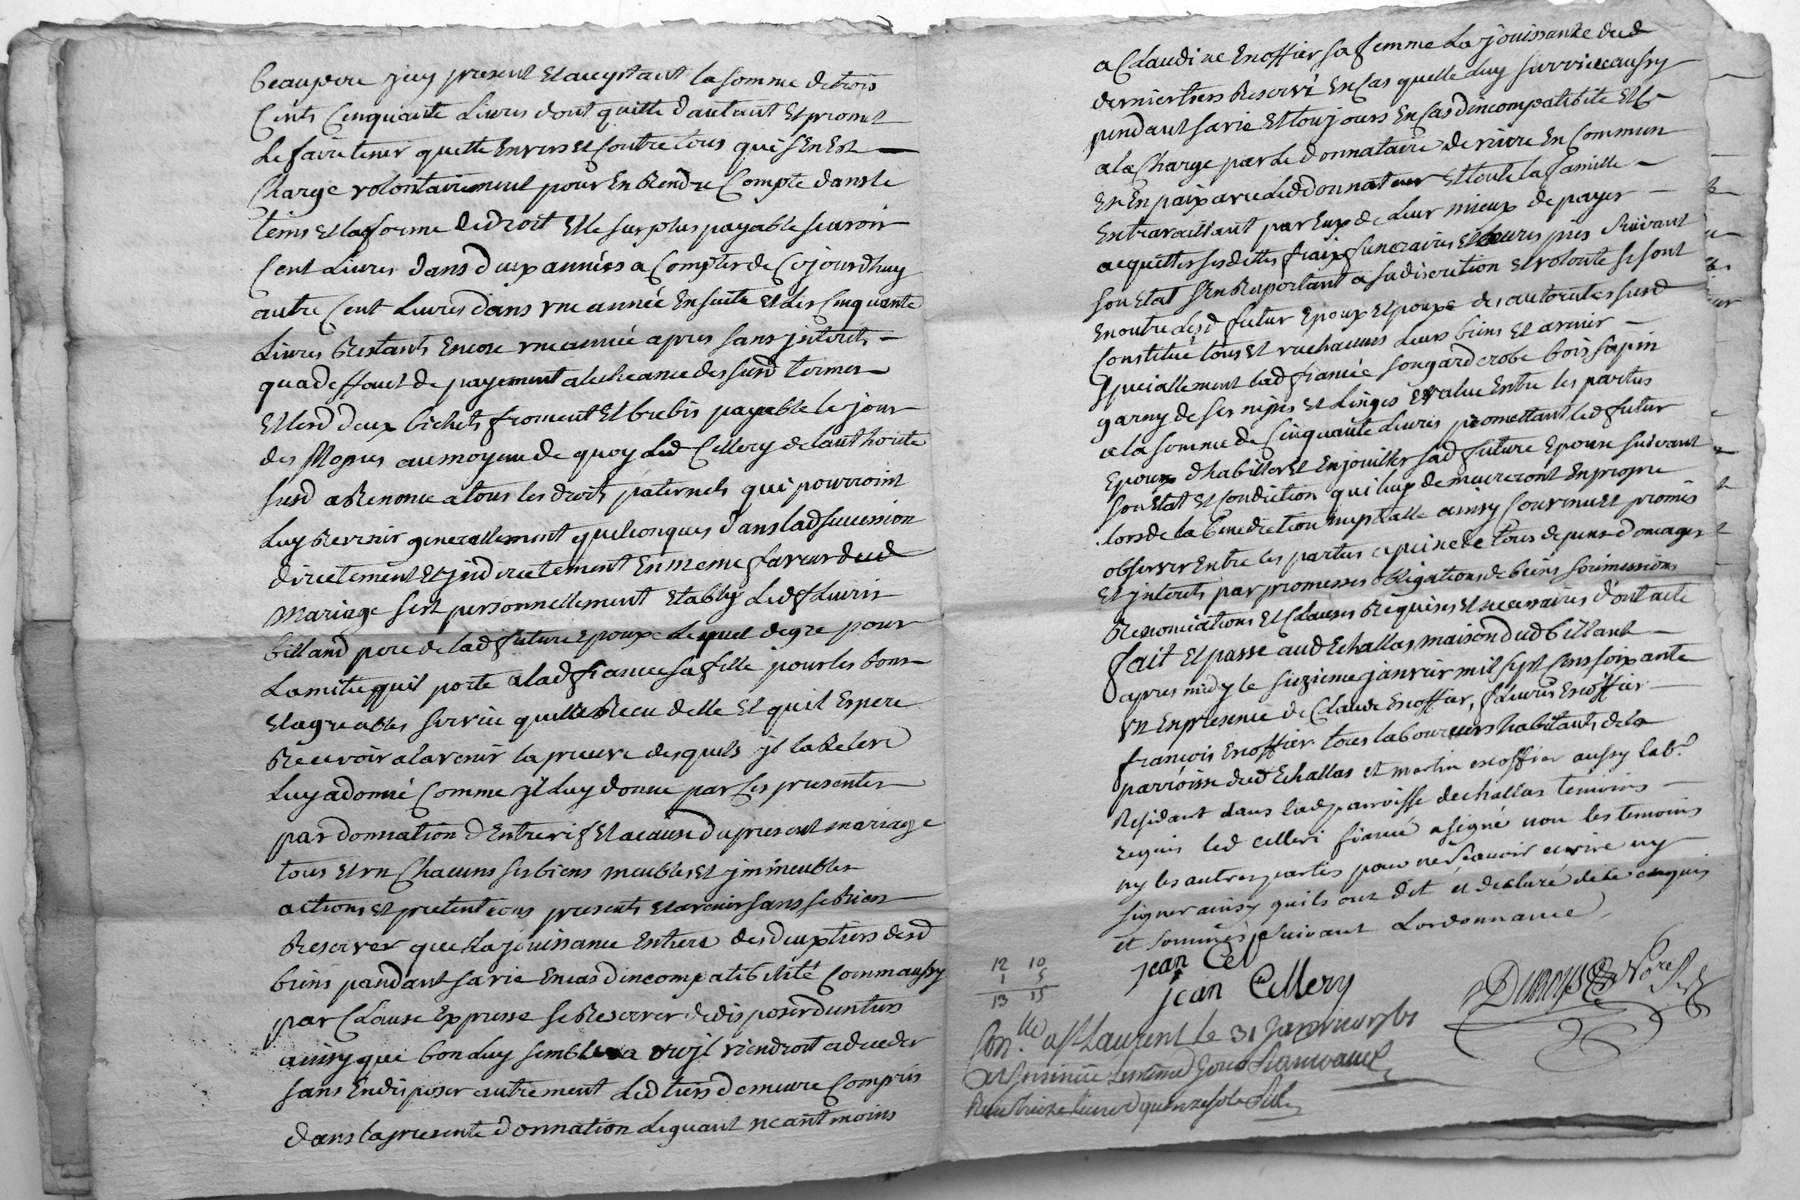 beaupere jcy present et aceptant la somme de trois
Cents Cinquante Livres dont quitte d'autant Et promet
de faire tenir quitte Envers et Contre tous qui s'En Est
Charge volontairement pour En Rendre Compte dans le
tems et la forme de droit Et le surplus payable scavoir
Cent Livres dans deux années a Compter de Cejourdhuy
autre Cent Livres dans une année Ensuite et Les Cinquante
Livres Restants Encore une année apres sans jnterets
qua deffaut de payement a lecheance des susd termes
Et lesd deux bichets froment Et brebis payable le jour
des Nopces au moyen de quoy Led Cellery de lauthorité
susd a Renoncé a tous les droits paternels qui pourroint
Luy Revenir generallement quelconques dans lad succession
directement Et jndirectement En meme faveur dud
mariage s'est personnellement Etably Led fleurin
billand pere de lad future Epouse Lequel de gre pour
Lamitie quil porte a lad fiancee sa fille pour les bons
Et agreables service quil a Receu delle Et quil Espere
Recevoir a lavenir la preuve desquels jl la Releve
Luy a donné Comme jl Luy donne par Les presentes
par donnation d'Entrevif Et a cause du present mariage
tous et un Chacuns ses biens meubles et jmmeubles
actions et pretentions presents et avenir sans se Rien
Reserver que La jouissance Entiere des deux tiers desd
biens pandant sa vie En cas d'incompatibilité Comm aussy
par Clause Expresse se Reserver de disposer d'un tiers
ainsy que bon Luy semblera Et ou jl viendroit a deceder
sans En disposer autrement Led tiers demeure Compris
dans la presente donnation Leguant neantmoins
a Claudine Escoffier sa femme La jouissance dud
dernier tiers Reservé En Cas quelle Luy survive aussy
pendant sa vie Et toujours En Cas d'incompatibilité Et Ce
a la Charge par Le donnataire de vivre En Commun
et En paix avec Led donnateur Et toute la famille
En travaillant par Eux de Leur mieux de payer
acquitter ses dettes fraix funeraires Et heuvres pies suivant
son Etat s'En Raportant a sa discretion et volonté se sont
En outre Lesd futur Epoux et Epouse des autorites susd
Constitué tous et un chacuns Leurs biens Et avenir
speciallement lad fiancée son garderobe bois sapin
garny de ses nipes Et Linges Evalué Entre les parties
a la somme de Cinquante Livres promettant led futur
Epoux d'habiller Et Enjoailler sad future Epouse suivant
son Etat Et Condiction qui luy demeureront En propre
lors de la benediction nuptialle ainsy Convenu Et promis
observer Entre les parties a peine de tous depens domages
Et jnterets par promesses obligations de biens soumissions
Renonciations Et Clauses Requises et necessaires d'ont acte
fait Et passe aud Echallas maison dud billand
apres midy le seizieme janvier mil sept Cens soixante
un En presence de Claude Escoffier, fleuris Escoffier
françois Escoffier tous laboureurs habitants de la
parroisse dud Echallas et martin escoffier aussy lab.r
Residant dans lad parroisse dechallas temoins
requis led celleri fiancé a signé non les temoins
ny les autres parties pour ne scavoir ecrire ny
signer ainsy quils ont dit et declaré de ce enquis
et sommés suivant Lordonnance
jean Cel
jean Cellery
12 10
1 5
13 15
Con.lle a St Laurent le 31 Janvier 1761
Reçu treize livres quinze sols